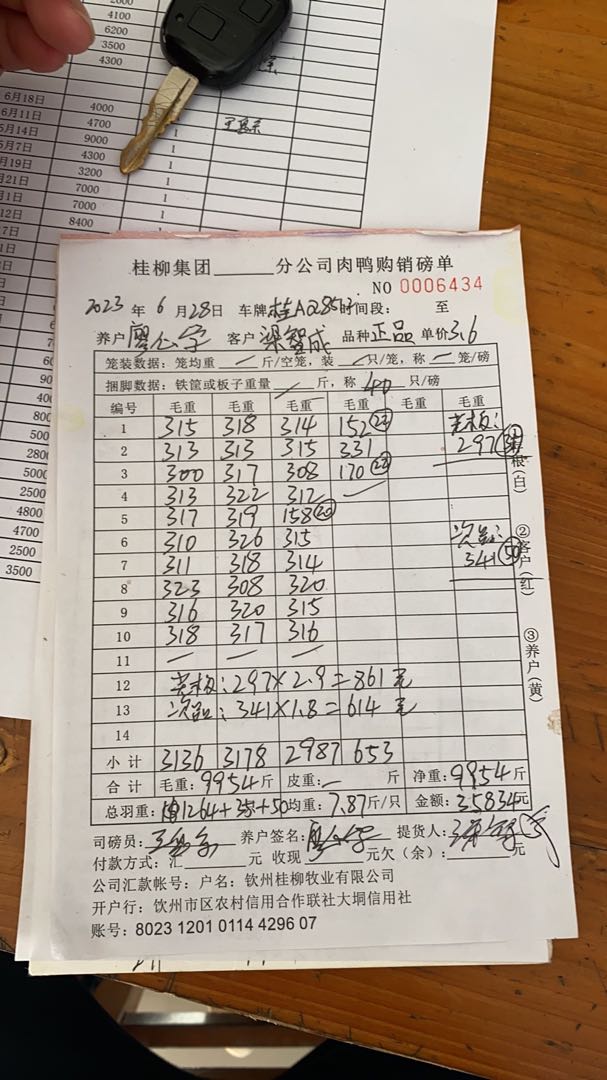 4100
6200
3500
4300
6月18日
6月11日 4000
5月14日 4700 1
5月7日 9000 1
4300 1
3200 1
7000 1
7000 1
8400
桂柳集团______分公司肉鸭购销磅单
NO 0006434
2023 年 6 月 28 日 车牌 桂A 时间段: 至
养户 廖 客户 梁智成 品种 正品 单价 3.6
笼装数据:笼均重 一 斤/空笼,装 只/笼,称 一 笼/磅
捆脚数据:铁筐或板子重量 一 斤,称 40 只/磅
编号 毛重 毛重 毛重 毛重 毛重 毛重
1 315 318 314 152 ㉒
2 313 313 315 331 297
3 300 317 308 170 ㉒
4 313 322 312 一
5 317 319 158 ⑳ 次品:
6 310 326 315 341 ㊿
7 311 318 314
8 323 308 320
9 316 320 315
10 318 317 316
11 一 一 一
12 :297×2.9=861元
13 次品:341×1.8=614元
14
小计 3136 3178 2987 653
合计 毛重:9954斤 皮重:一 斤 净重:9954斤
总羽重: 1264+35+50 均重:7.87斤/只 金额:35834元
司磅员: 养户签名: 提货人:
付款方式:汇____元 收现____元欠(余):______元
公司汇款帐号:户名:钦州桂柳牧业有限公司
开户行:钦州市区农村信用合作联社大垌信用社
账号:8023 1201 0114 4296 07
①存根(白)
②客户(红)
③养户(黄)
5000
2500
4800
4700
2500
3500